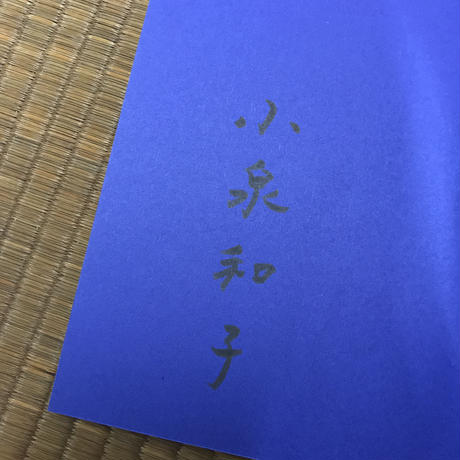 小泉和子